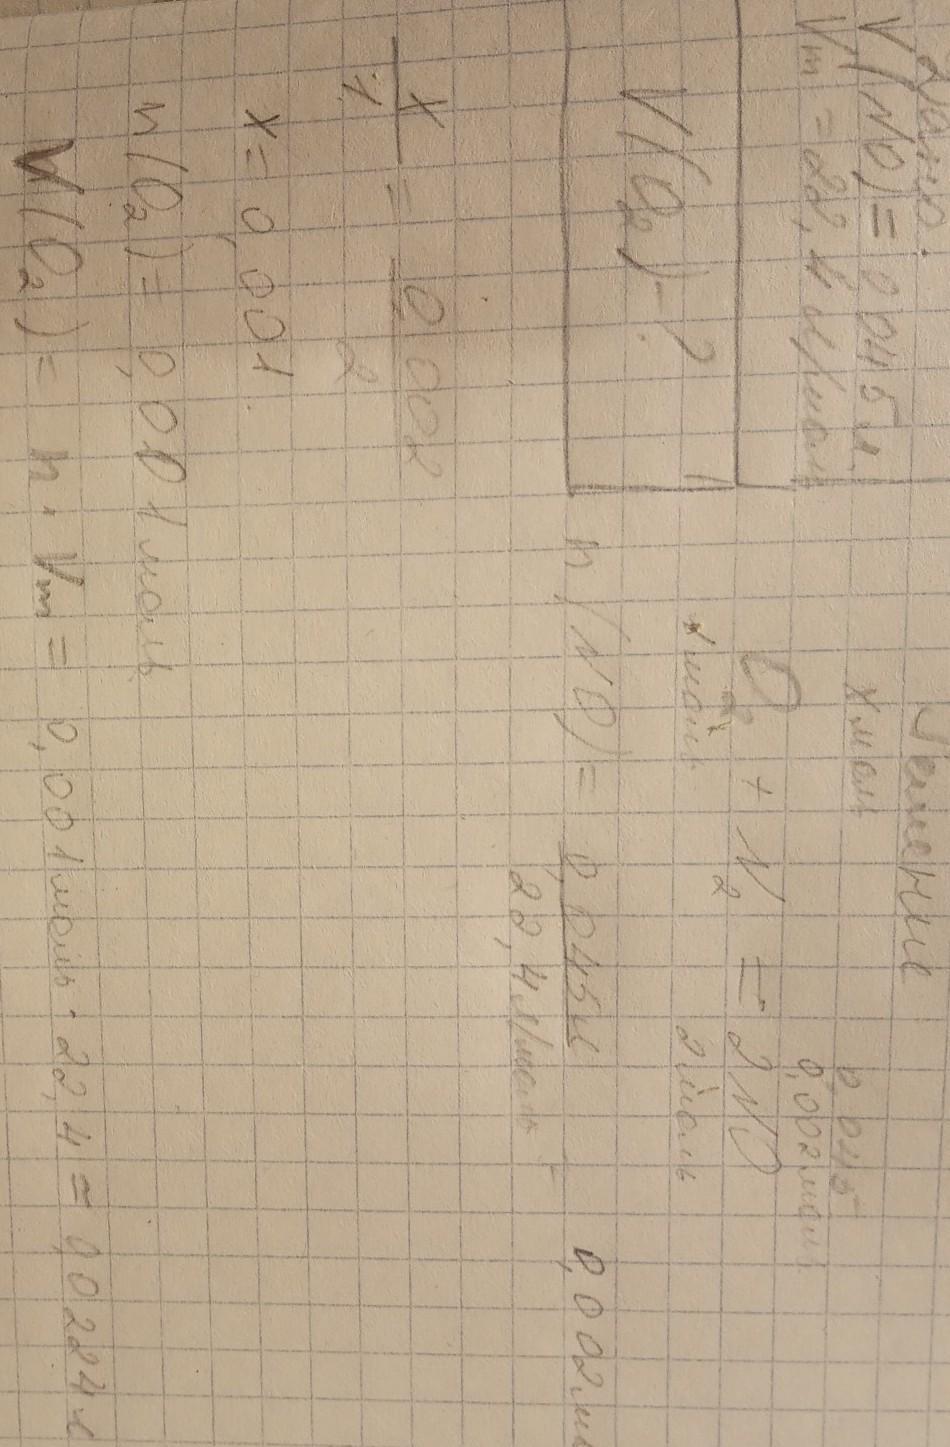 Дано:
V(NO) = 0,045 л
Vm = 22,4 л/моль
V(O2) - ?
Решение
x моль 0,045
0,002 моль
O2 + N2 = 2NO
1 моль 2 моль
n(NO) = 0,045 л / 22,4 л/моль = 0,002 мо
x/1 = 0,002/2
x = 0,001
n(O2) = 0,001 моль
V(O2) = n · Vm = 0,001 моль · 22,4 = 0,0224 л